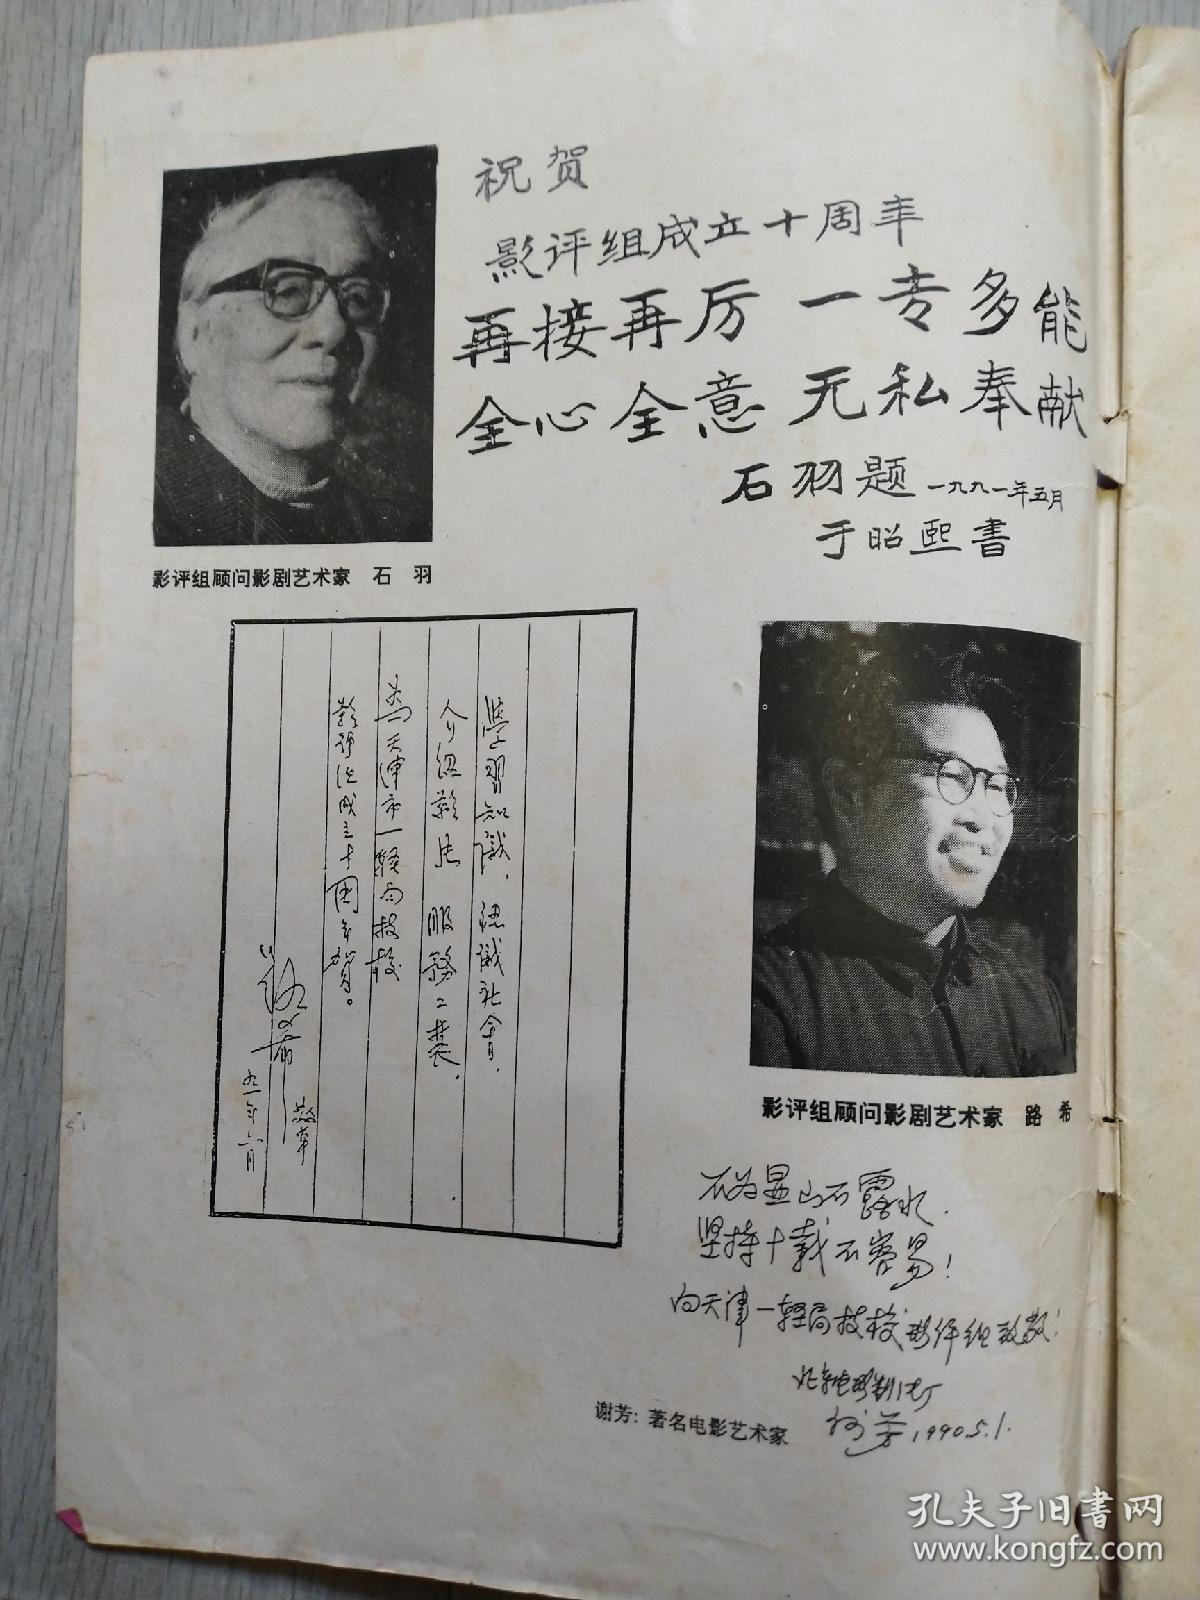 祝贺
影评组成立十周年
再接再厉 一专多能
全心全意 无私奉献
石羽题 一九九一年五月
于昭熙書
影评组顾问影剧艺术家 石 羽
学習知識，認識社會，
介紹影片 服務二老．
為天津市一轻局技校
影評組成立十周年賀。
路希
九一年六月
影评组顾问影剧艺术家 路 希
不为显山不露水．
坚持十载不容易！
向天津一轻局技校影评组致敬！
北京电影制片厂
谢芳 1990.5.1.
谢芳：著名电影艺术家
孔夫子旧書网
www.kongfz.com